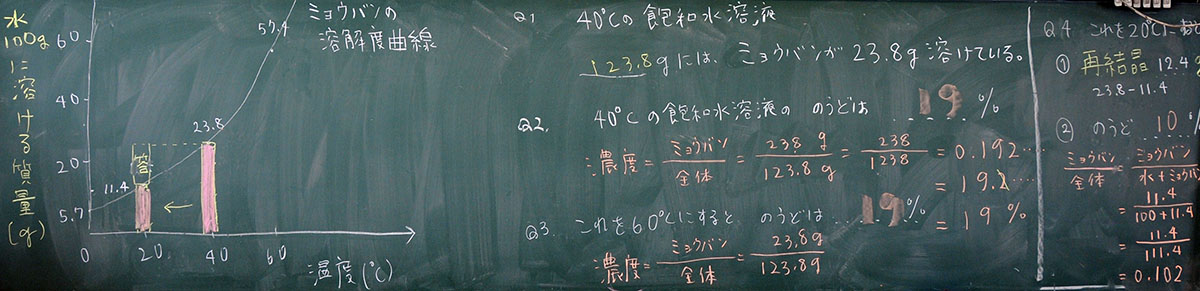 水100gに溶ける質量(g)
ミョウバンの
溶解度曲線
57.4
60
40
23.8
20
答
11.4
5.7
0 20 40 60
温度(℃)
Q1 40℃の飽和水溶液
123.8gには、ミョウバンが23.8g溶けている。
Q2. 40℃の飽和水溶液の のうどは 19 %
濃度=ミョウバン/全体=23.8g/123.8g=238/1238=0.192…
=19.2…
=19%
Q3. これを60℃にすると、のうどは 19%
濃度=ミョウバン/全体=23.8g/123.8g
Q4 これを20℃に
① 再結晶 12.4
23.8-11.4
② のうど 10 %
ミョウバン/全体=ミョウバン/水+ミョウバン
=11.4/100+11.4
=11.4/111.4
=0.102